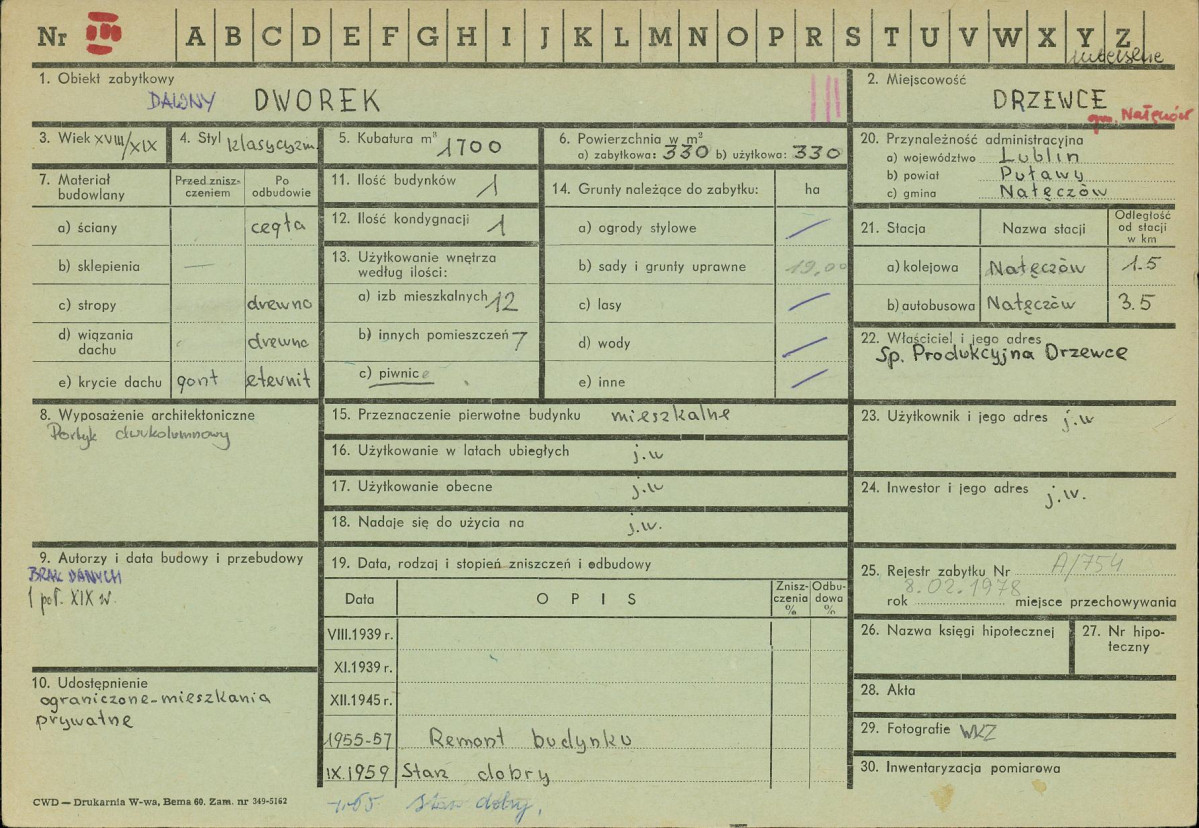 Nr III A B C D E F G H I J K L M N O P R S T U V W X Y Z
1. Obiekt zabytkowy
DAWNY DWOREK
2. Miejscowość
DRZEWCE
gm. Nałęczów
3. Wiek XVIII/XIX
4. Styl klasycyzm
5. Kubatura m³ 1700
6. Powierzchnia w m²
a) zabytkowa: 330 b) użytkowa: 330
20. Przynależność administracyjna
a) województwo Lublin
b) powiat Puławy
c) gmina Nałęczów
7. Materiał budowlany
Przed zniszczeniem
Po odbudowie
a) ściany cegła
b) sklepienia —
c) stropy drewno
d) wiązania dachu drewno
e) krycie dachu gont eternit
11. Ilość budynków 1
12. Ilość kondygnacji 1
13. Użytkowanie wnętrza
według ilości:
a) izb mieszkalnych 12
b) innych pomieszczeń 7
c) piwnic
14. Grunty należące do zabytku: ha
a) ogrody stylowe /
b) sady i grunty uprawne 19,00
c) lasy /
d) wody /
e) inne /
21. Stacja
Nazwa stacji
Odległość
od stacji
w km
a) kolejowa Nałęczów 1.5
b) autobusowa Nałęczów 3.5
22. Właściciel i jego adres
Sp. Produkcyjna Drzewce
8. Wyposażenie architektoniczne
Portyk dwukolumnowy
15. Przeznaczenie pierwotne budynku mieszkalne
16. Użytkowanie w latach ubiegłych j.w
17. Użytkowanie obecne j.w
18. Nadaje się do użycia na j.w.
23. Użytkownik i jego adres j.w
24. Inwestor i jego adres j.w.
9. Autorzy i data budowy i przebudowy
BRAK DANYCH
1 poł. XIX w.
19. Data, rodzaj i stopień zniszczeń i odbudowy
Data
OPIS
Zniszczenia %
Odbudowa %
VIII.1939 r.
XI.1939 r.
XII.1945 r.
1955-57 Remont budynku
IX.1959 Stan dobry
65 stan dobry.
25. Rejestr zabytku Nr A/754
8.02.1978
rok miejsce przechowywania
26. Nazwa księgi hipotecznej
27. Nr hipoteczny
10. Udostępnienie
ograniczone-mieszkania
prywatne
28. Akta
29. Fotografie WKZ
30. Inwentaryzacja pomiarowa
CWD — Drukarnia W-wa, Bema 60. Zam. nr 349-5162